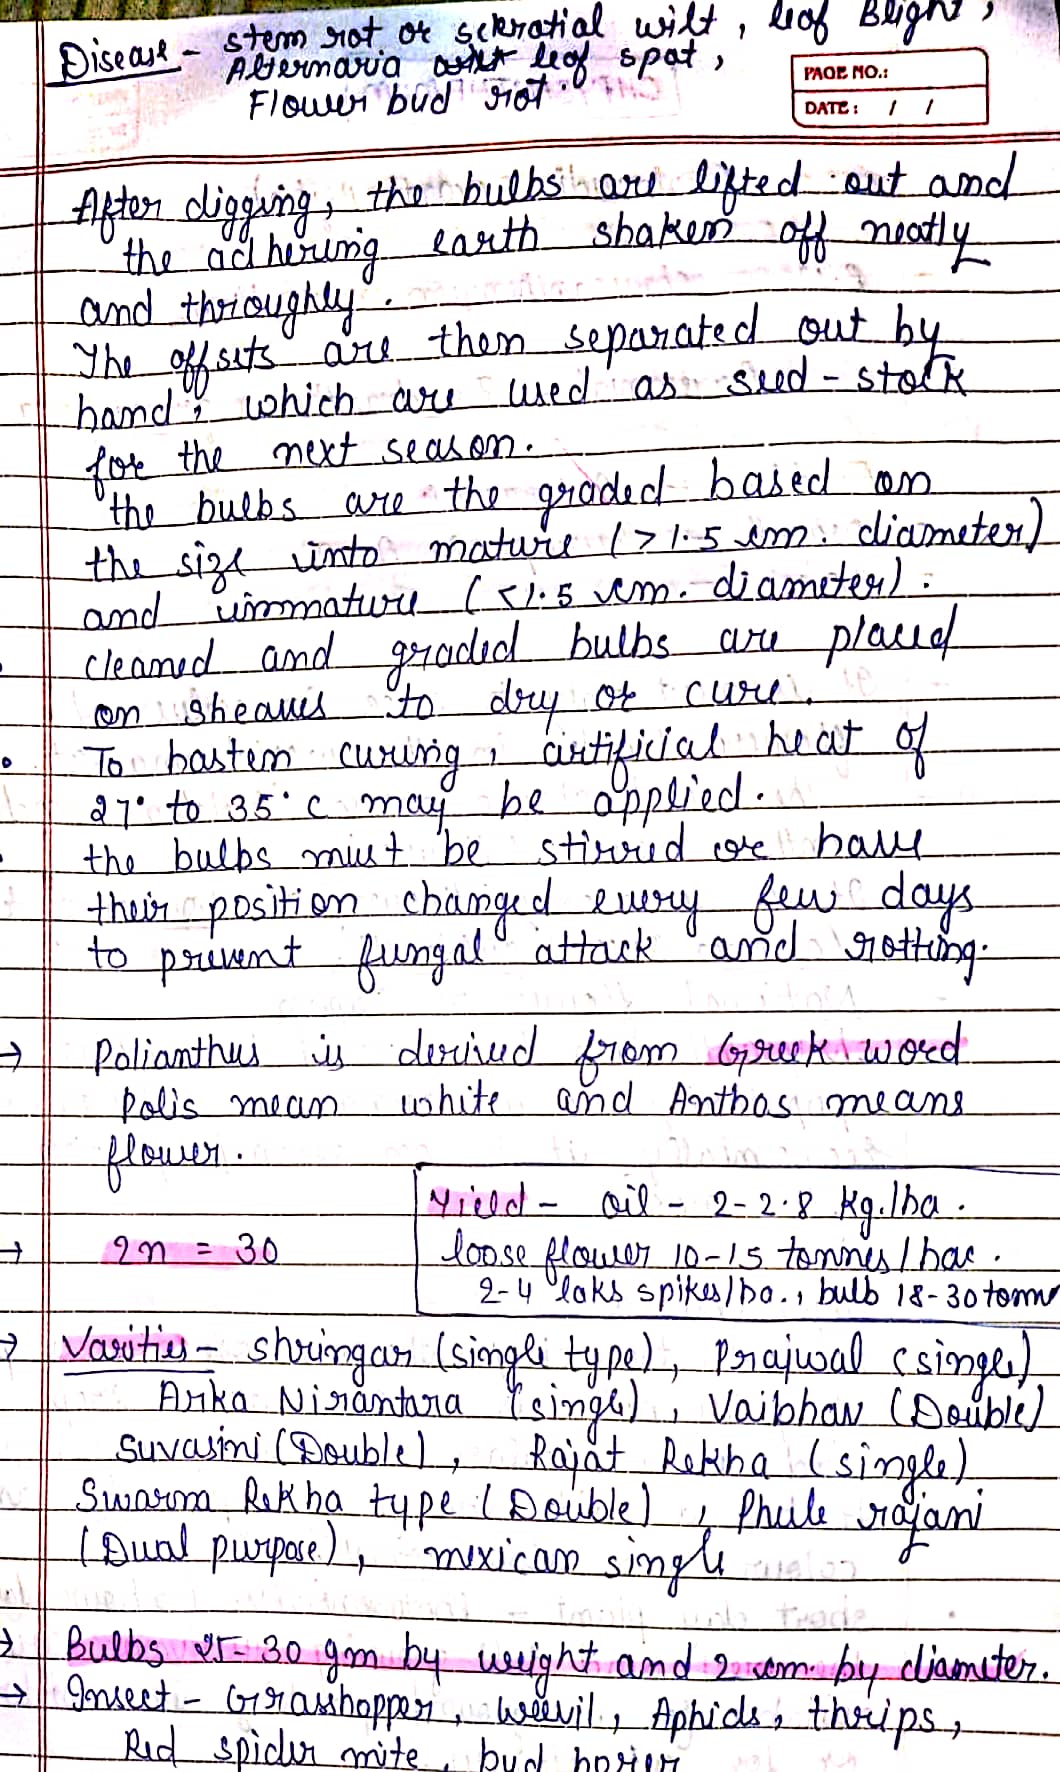 Disease - stem rot or sclerotial wilt, leof Blight,
Alternaria leof spot,
Flower bud rot.
PAGE NO.:
DATE: / /
After digging, the bulbs are lifted out and
the adhering earth shaken off neatly
and throughly.
The offsets are then separated out by
hand, which are used as seed-stock
for the next season.
the bulbs are the graded based on
the size into mature (>1.5 cm. diameter)
and immature (<1.5 cm. diameter).
cleaned and graded bulbs are placed
on sheaves to dry or cure.
To hasten curing, artificial heat of
27° to 35°c may be applied.
the bulbs must be stirred or have
their position changed every few days
to prevent fungal attack and rotting.
→ Polianthus is derived from Greek word
Polis mean white and Anthos means
flower.
Yield - oil - 2-2.8 kg./ha.
→ 2n = 30
loose flower 10-15 tonnes/hac.
2-4 laks spikes/ha., bulb 18-30 tonn
→ Varities - shringar (single type), Prajwal (single)
Arka Nirantara (single), Vaibhav (Double)
Suvasini (Double), Rajat Rekha (single)
Swarna Rekha type (Double), Phule rajani
(Dual purpose), mexican single
→ Bulbs 25-30 gm by weight and 2 cm. by diameter.
→ Insect - Grasshopper, weevil, Aphids, thrips,
Red spider mite, bud borer